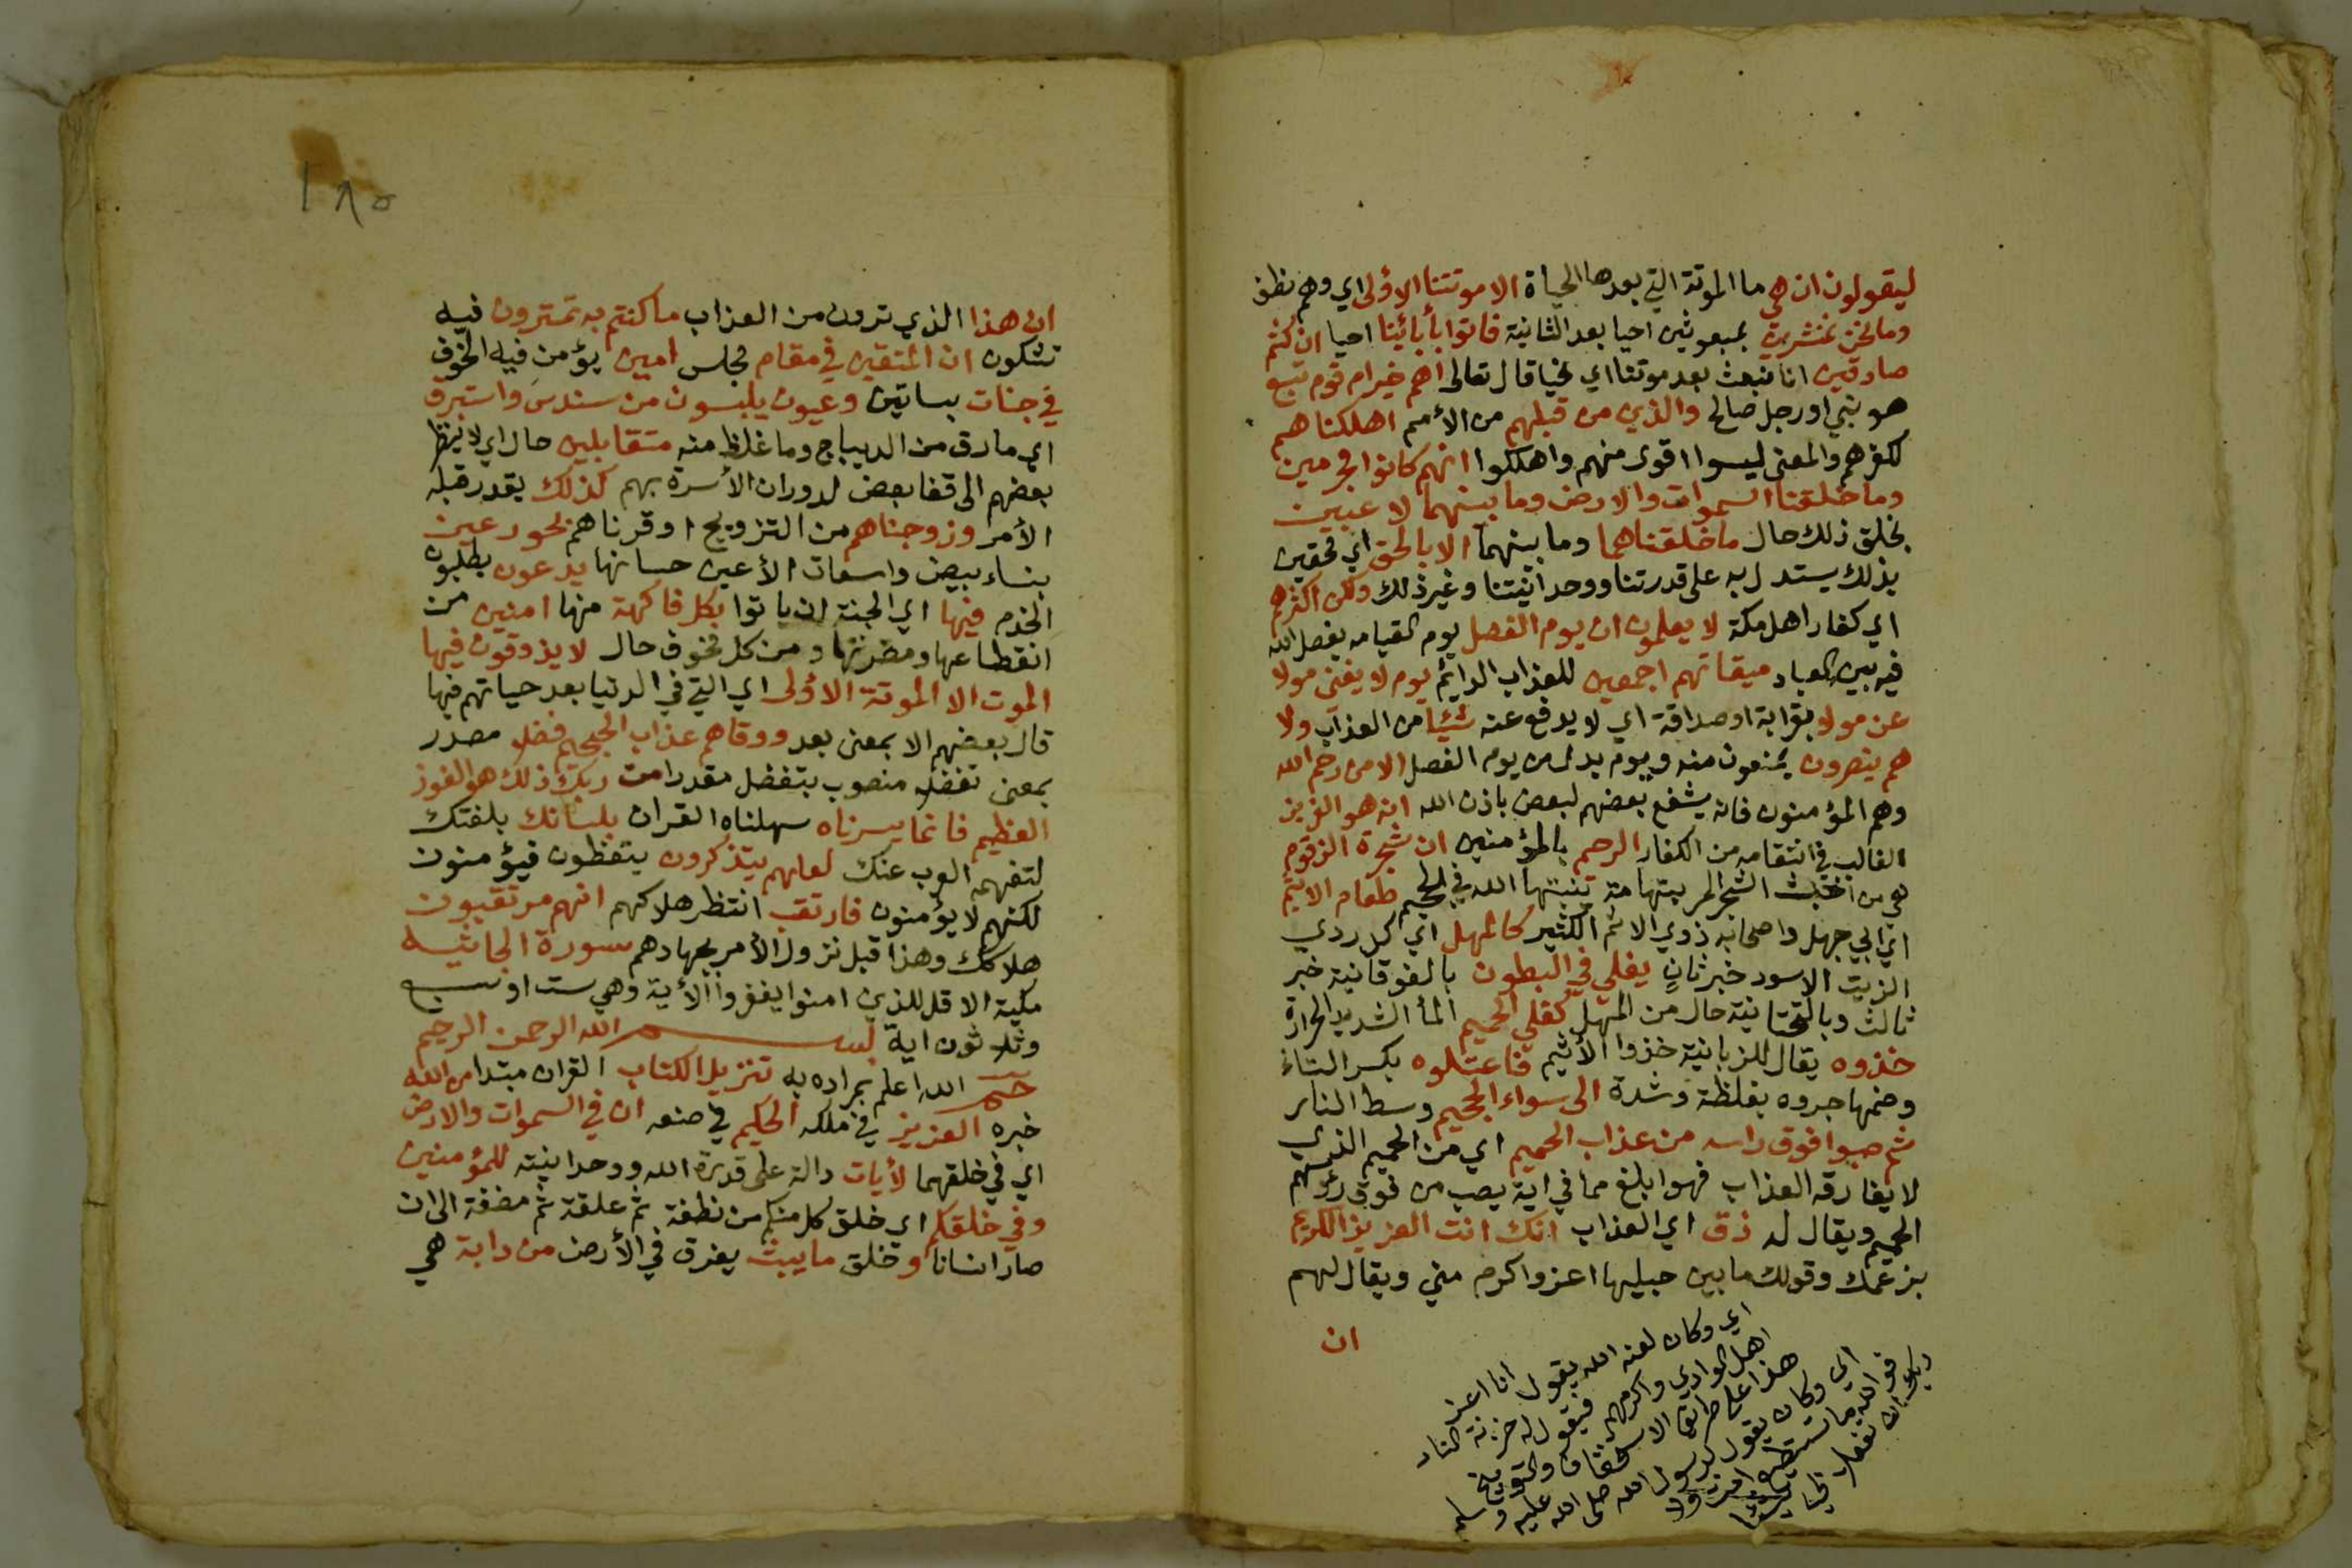 ليقولون ان هي ما الموتة التي بعدها الحياة الا موتتنا الاولى اي وهم نطف
وما نحن بمنشرين بمبعوثين احيا بعد الثانية فاتوا بأبائنا احيا ان كنتم
صادقين انا نبعث بعد موتنا اي نحيا قال تعالى اهم خير ام قوم تبع
هو نبي او رجل صالح والذين من قبلهم من الأمم اهلكناهم
لكفرهم والمعنى ليسوا اقوى منهم واهلكوا انهم كانوا مجرمين
وما خلقنا السموات والارض وما بينهما لاعبين
بخلق ذلك حال ما خلقناهما وما بينهما الا بالحق اي محقين
بذلك يستدل به على قدرتنا ووحدانيتنا وغير ذلك ولكن اكثرهم
اي كفار اهل مكة لا يعلمون ان يوم الفصل يوم القيامه يفصل الله
فيه بين العباد ميقاتهم اجمعين للعذاب الدائم يوم لا يغنى مولا
عن مولا بقرابة او صداقة اي لا يدفع عنه شيئا من العذاب ولا
هم ينصرون يمنعون منه ويوم بدل من يوم الفصل الا من رحم الله
وهم المؤمنون فانه يشفع بعضهم لبعض باذن الله انه هو العزيز
الغالب في انتقامه من الكفار الرحيم بالمؤمنين ان شجرة الزقوم
هي من اخبث الشجر المر بتهامة تنبتها الله في الجحيم طعام الاثيم
اي ابي جهل واصحابه ذوي الاثم الكثير كالمهل اي كل ردي
الزيت الاسود خبر ثان يغلي في البطون بالفوقانية خبر
ثالث وبالتحتانية حال من المهل كغلي الحميم المأ الشديد الحرارة
خذوه يقال للزبانية خذوا الأثيم فاعتلوه بكسر التاء
وضمها جروه بغلظة وشدة الى سواء الجحيم وسط النار
ثم صبوا فوق راسه من عذاب الحميم اي من الحميم الذي
لا يفارقه العذاب فهو ابلغ مما في اية يصب من فوق رؤسهم
الحميم ويقال له ذق اي العذاب انك انت العزيز الكريم
بزعمك وقولك ما بين جبليها اعز واكرم مني ويقال لهم
ان
اي وكان لعنه الله يقول انا اعز
اهل الوادي واكرمهم فيقول له خزنة النار
هذا على طريق الاستخفاف والتوبيخ
اي وكان يقول لرسول الله صلى الله عليه وسلم
فو الله ما تستطيع انت ولا
ربك ان تفعلا بي شيئا
١٨٥
ان هذا الذي ترون من العذاب ما كنتم به تمترون فيه
تشكون ان المتقين في مقام مجلس امين يؤمن فيه الخوف
في جنات بساتين وعيون يلبسون من سندس واستبرق
اي ما رق من الديباج وما غلظ منه متقابلين حال اي لا ينظر
بعضهم الى قفا بعض لدوران الأسرة بهم كذلك يقدر قبله
الأمر وزوجناهم من التزويج او قرناهم بحور عين
بنساء بيض واسعات الأعين حسانها يدعون يطلبون
الخدم فيها اي الجنة ان ياتوا بكل فاكهة منها امنين من
انقطاعها ومضرتها ومن كل مخوف حال لا يذوقون فيها
الموت الا الموتة الاولى اي التي في الدنيا بعد حياتهم فيها
قال بعضهم الا بمعنى بعد ووقاهم عذاب الجحيم فضلا مصدر
بمعنى تفضلا منصوب بتفضل مقدرا من ربك ذلك هو الفوز
العظيم فانما يسرناه سهلناه القران بلسانك بلغتك
لتفهمه العرب عنك لعلهم يتذكرون يتعظون فيؤمنون
لكنهم لا يؤمنون فارتقب انتظر هلاكهم انهم مرتقبون
هلاكك وهذا قبل نزول الأمر بجهادهم سورة الجاثيه
مكية الا قل للذين امنوا يغفروا الأية وهي ست او سبع
وثلاثون اية بسم الله الرحمن الرحيم
حم الله اعلم بمراده به تنزيل الكتاب القران مبتدا من الله
خبره العزيز في ملكه الحكيم في صنعه ان في السموات والارض
اي في خلقهما لأيات دالة على قدرة الله ووحدانيته للمؤمنين
وفي خلقكم اي خلق كل منكم من نطفة ثم علقة ثم مضغة الى ان
صار انسانا وخلق ما يبث يفرق في الأرض من دابة هي